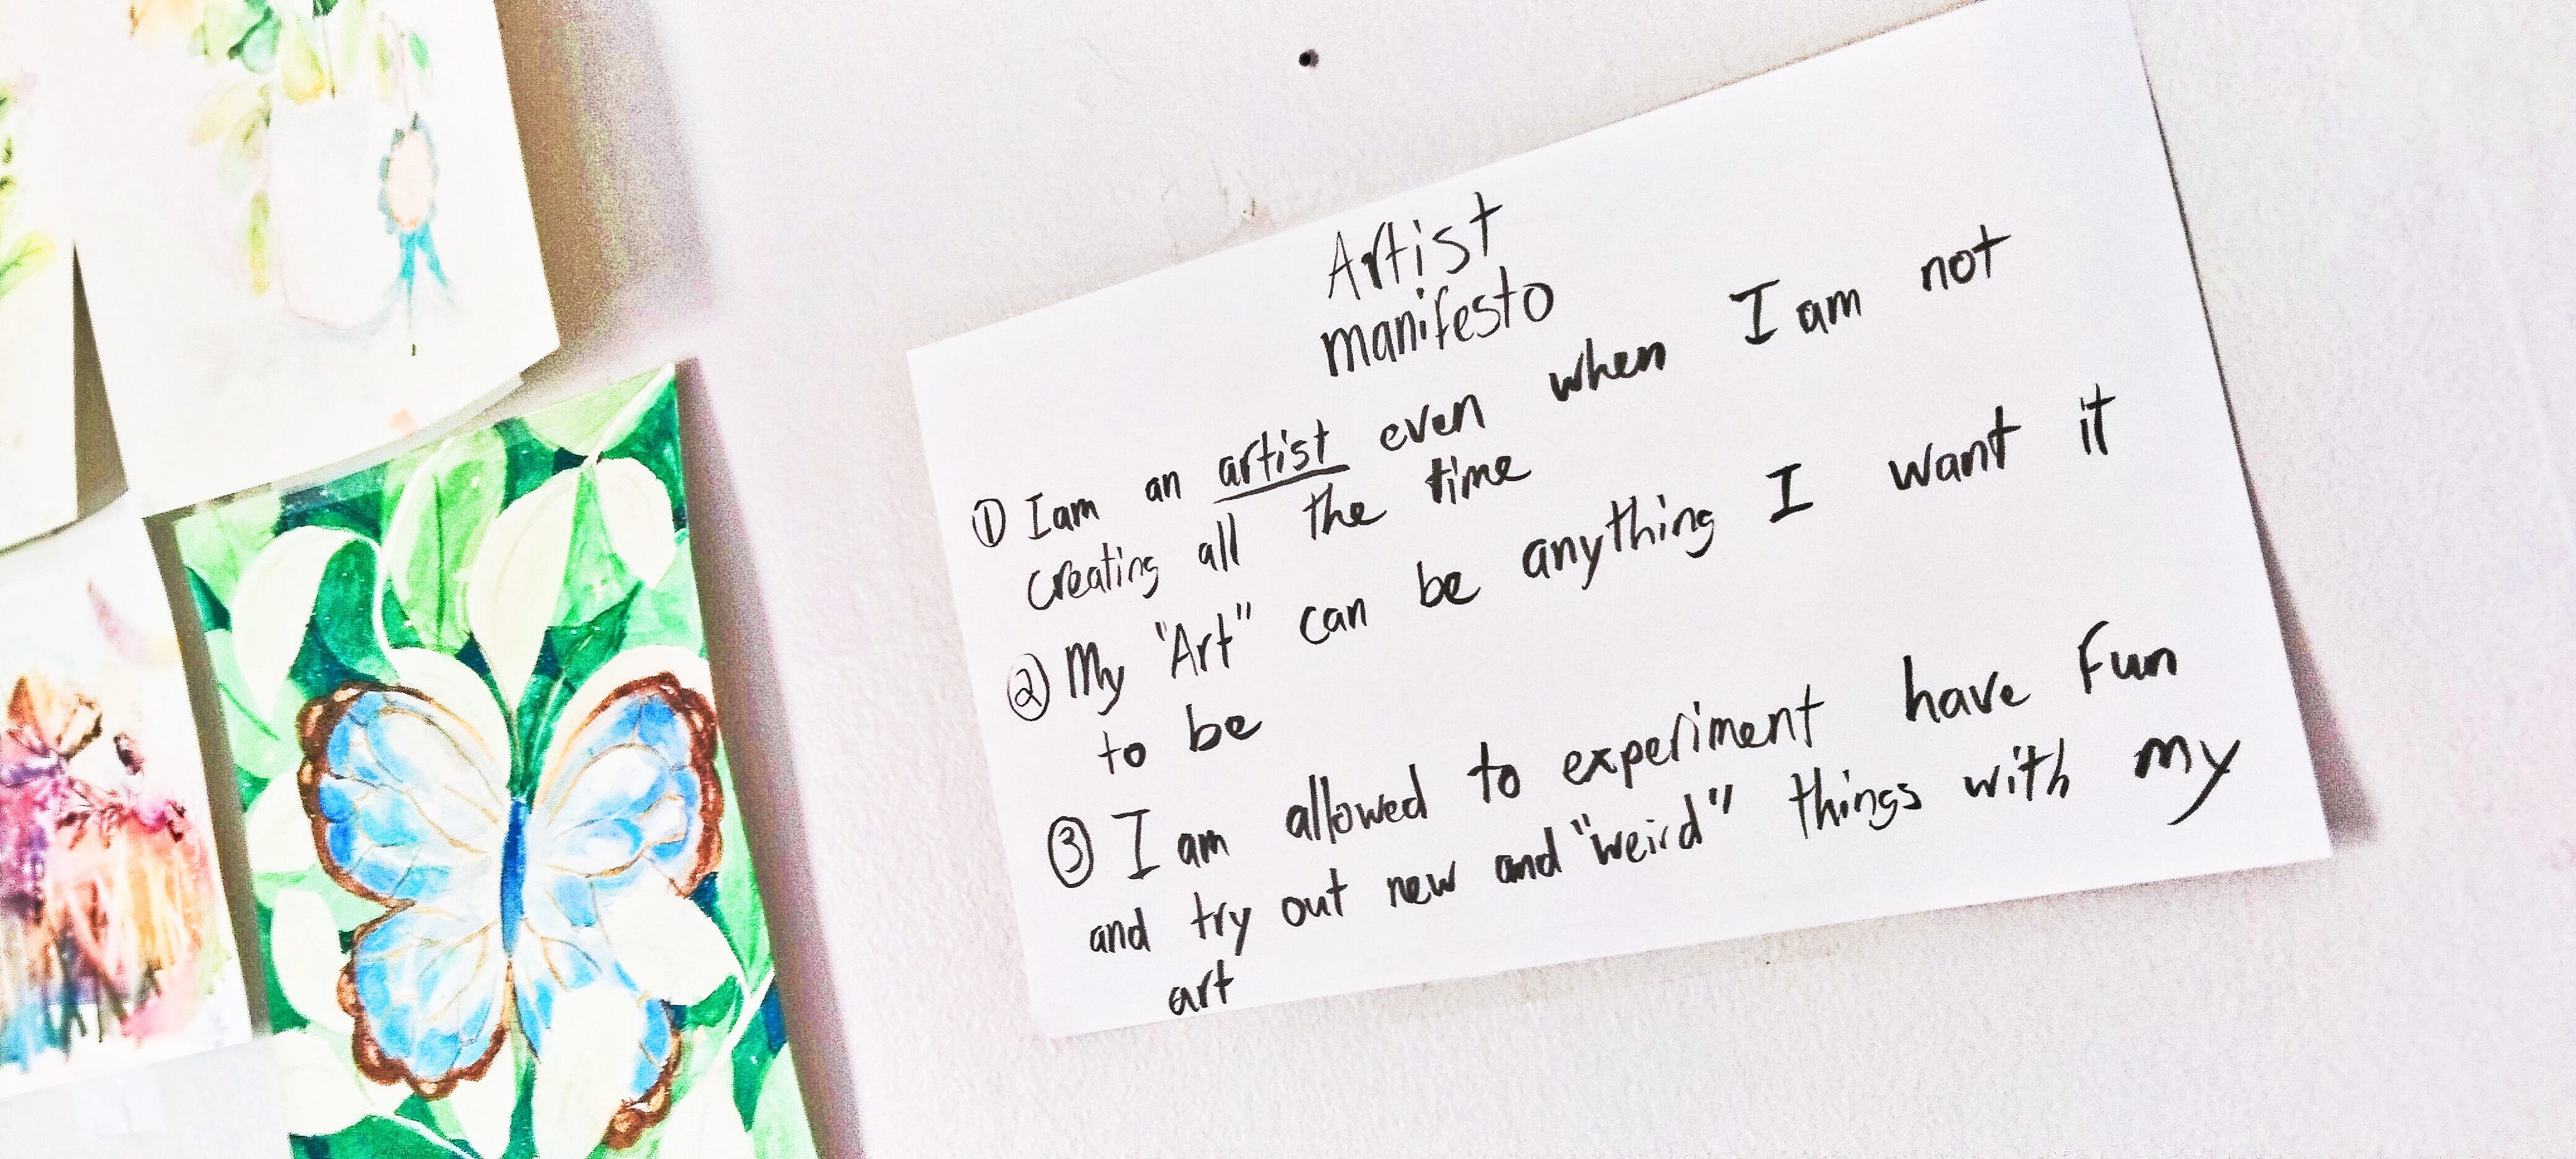 Artist
manifesto
① I am an artist even when I am not
creating all the time
② My "Art" can be anything I want it
to be
③ I am allowed to experiment have fun
and try out new and "weird" things with my
art